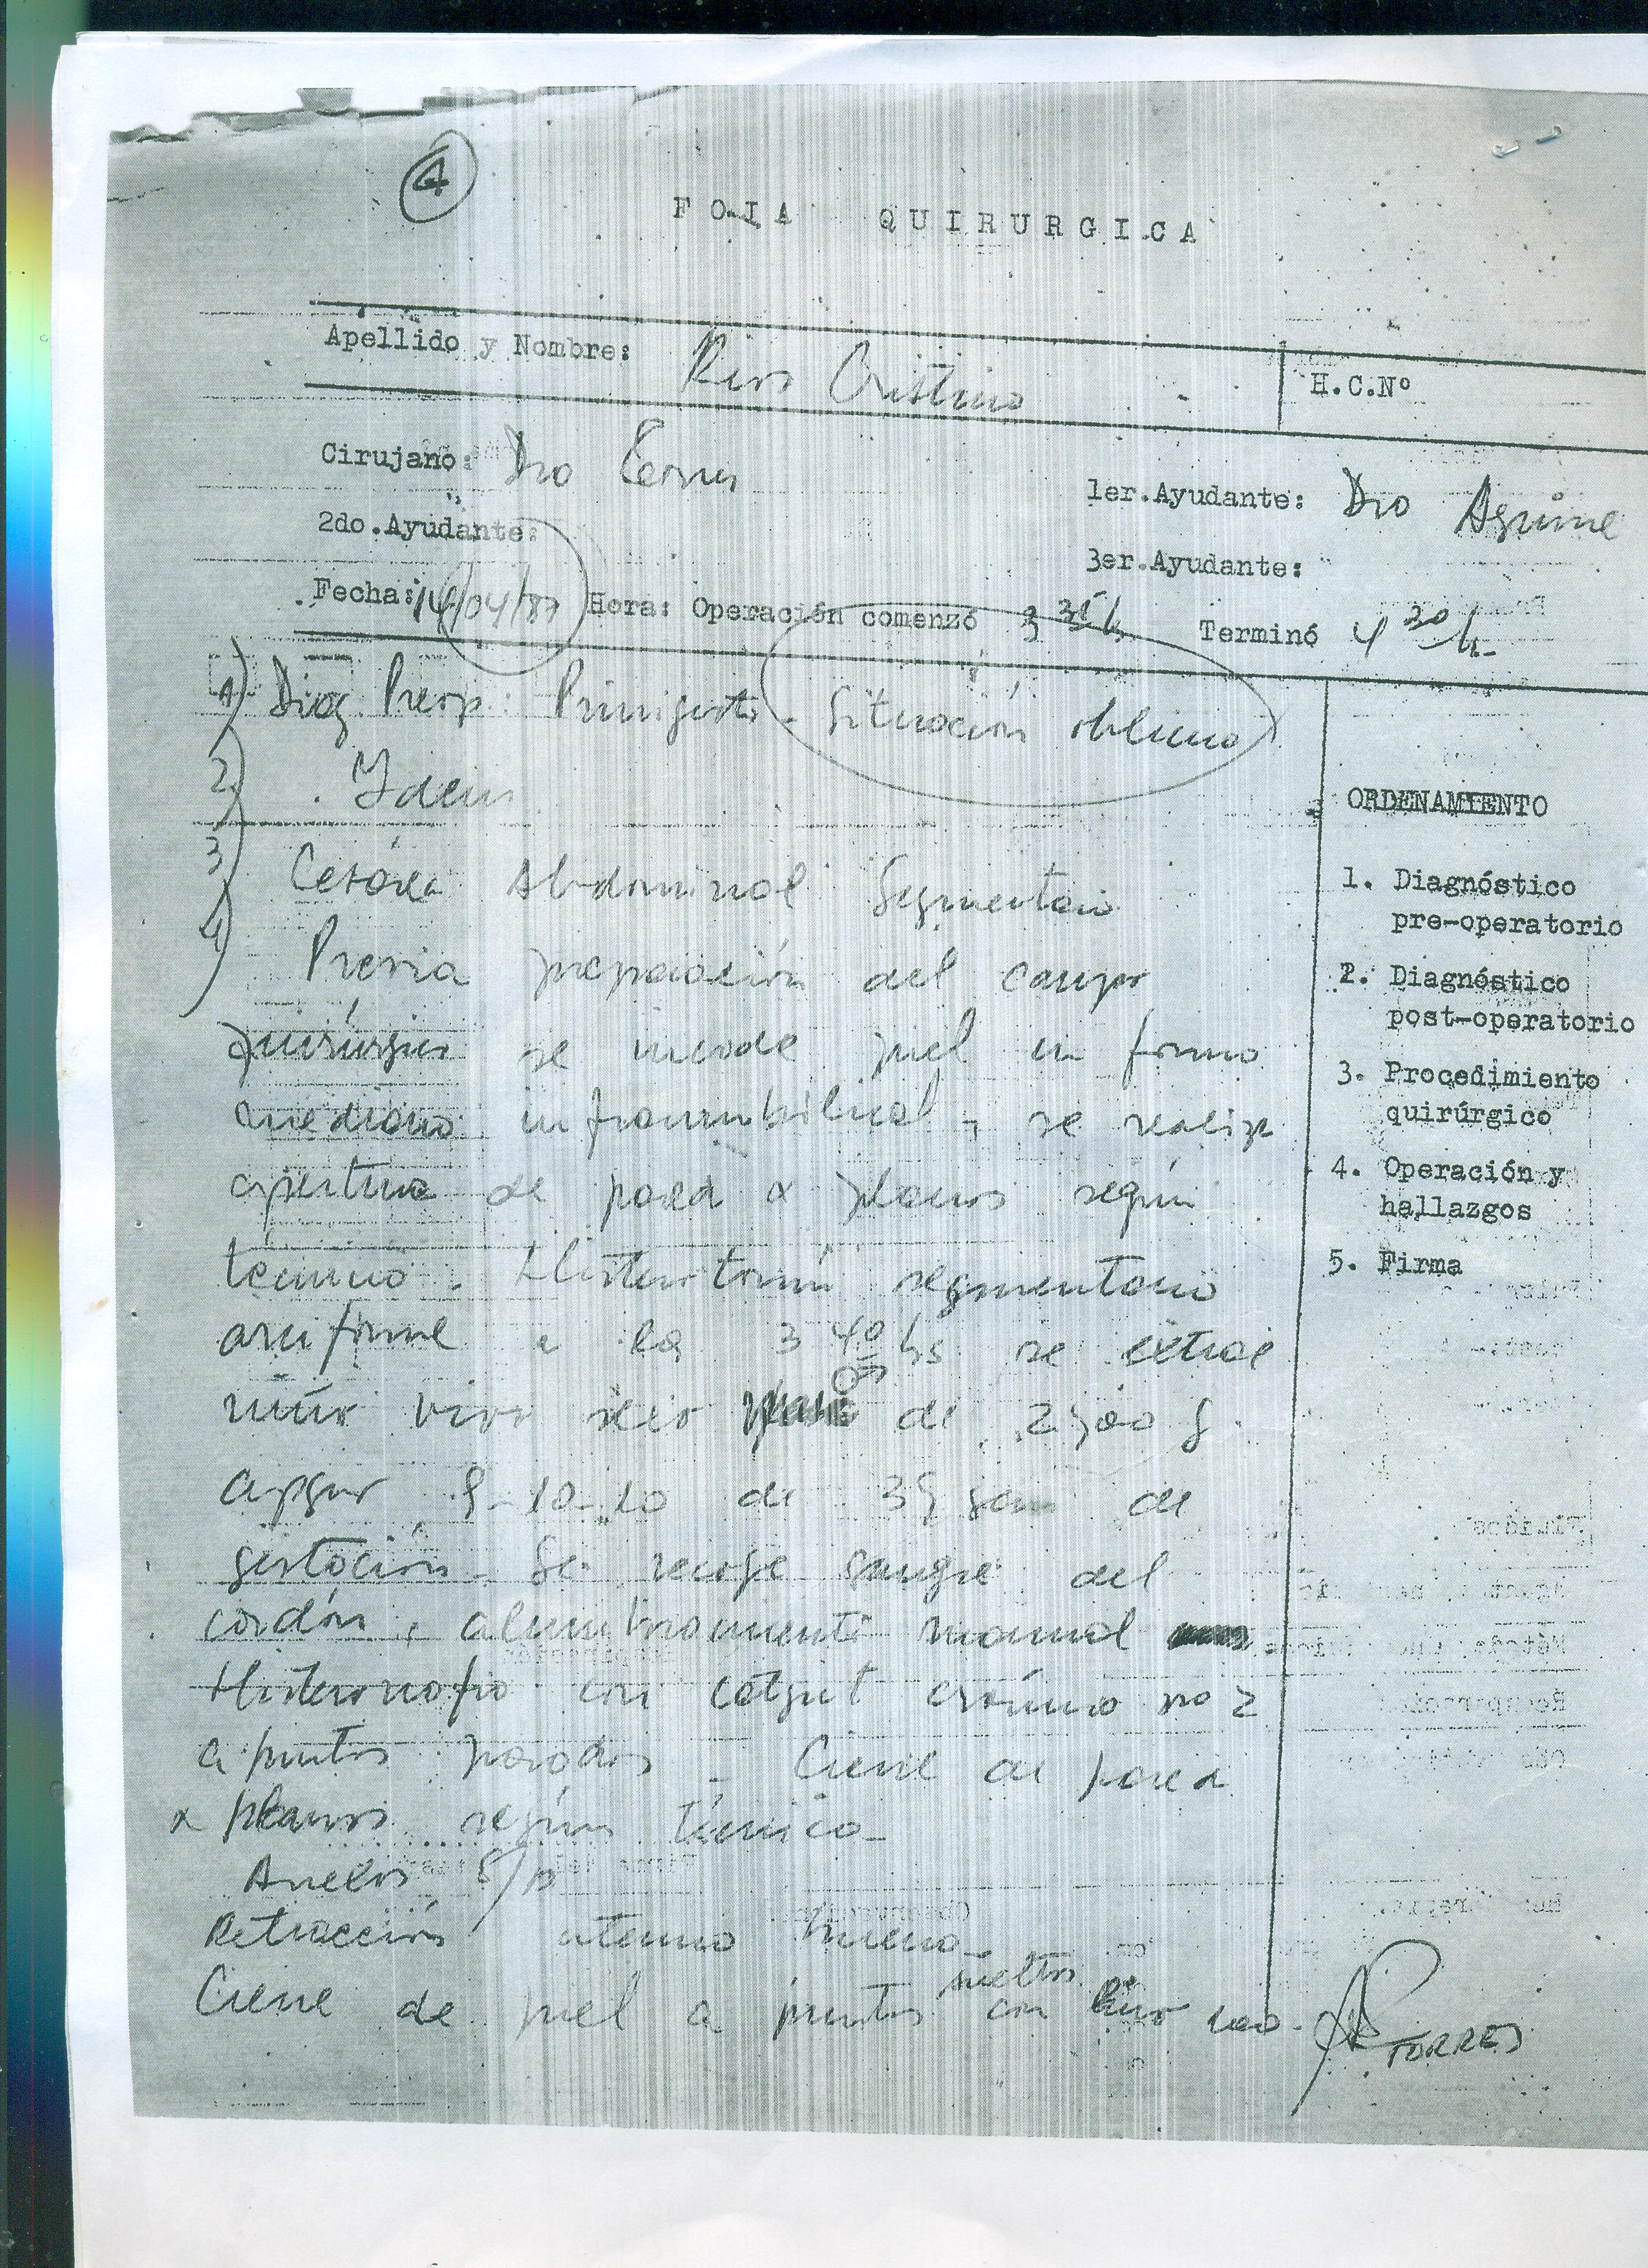 4
FOJA QUIRURGICA
Apellido y Nombre: Rios Cristina
H.C.Nº
Cirujano: Dra Torres
1er.Ayudante: Dra Aguirre
2do.Ayudante:
3er.Ayudante:
Fecha: 14/04/87 Hora: Operación comenzó 3 35 h Terminó 4 30 h
1) Diag Preop: Primigesta - Situación oblicua
2) Idem
3) Cesárea Abdominal Segmentaria
4) Previa preparación del campo
quirúrgico se incide piel en forma
mediana infraumbilical, se realiza
apertura de pared x planos según
tecnica - Histerotomía segmentaria
arciforme a las 3 40 hs se extrae
niño vivo sexo ♂ de g.
apgar 9-10-10 de sem de
gestación - Se recoge sangre del
cordón, alumbramiento manual
Histerorrafia con catgut crómico no 2
a puntos pasados - Cierre de pared
x planos según técnica -
Anexos s/p
Retracción uterina buena -
Cierre de piel a puntos sueltos con lino
TORRES
ORDENAMIENTO
1. Diagnóstico
pre-operatorio
2. Diagnóstico
post-operatorio
3. Procedimiento
quirúrgico
4. Operación y
hallazgos
5. Firma